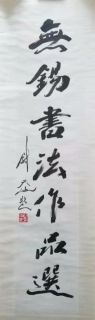 無錫書法作品選